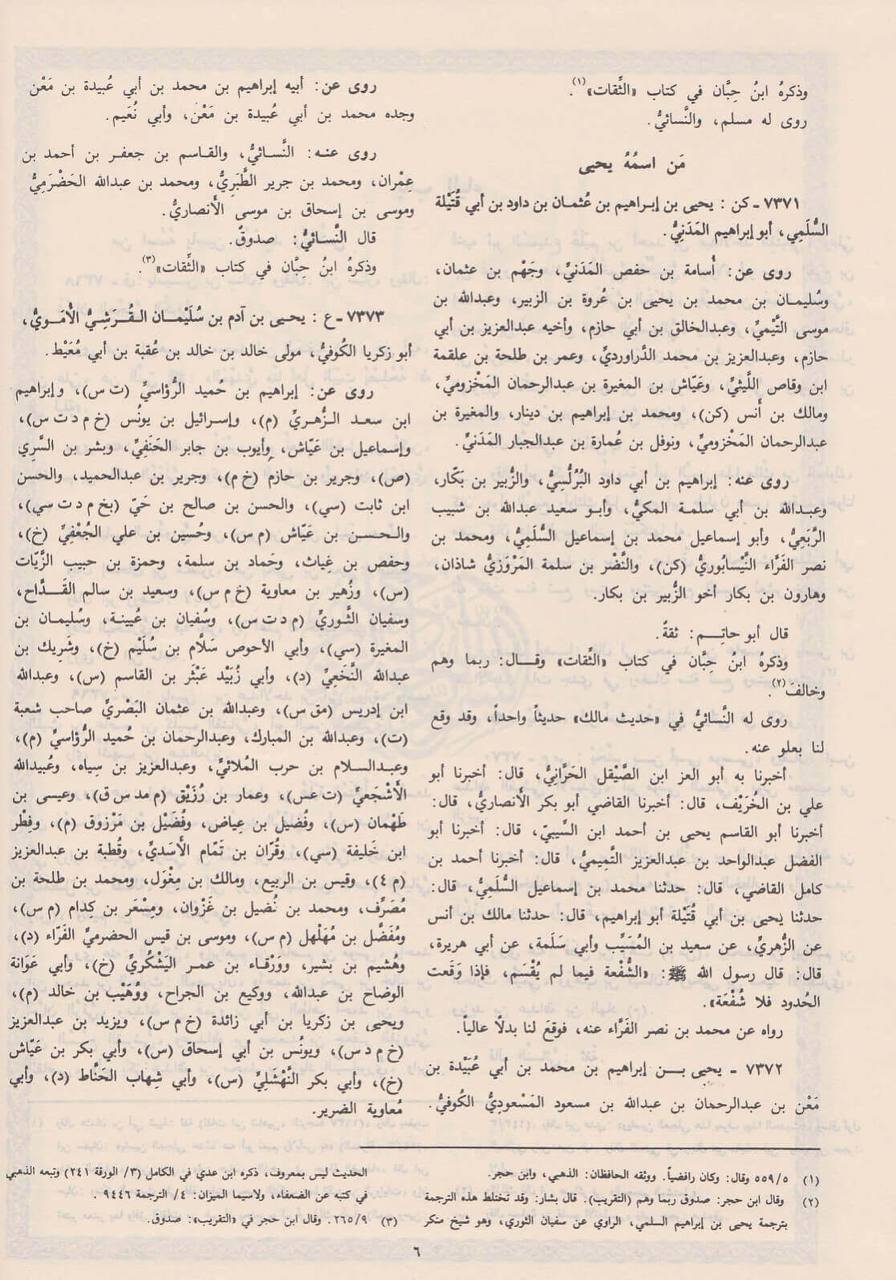 وذكرهُ ابنُ حِبَّان في كتاب «الثِّقات»(١).
روى له مسلم، والنَّسائيُّ.
مَن اسمُهُ يحيى
٧٣٧١ ـ كن : يحيى بن إبراهيم بن عُثمان بن داود بن أبي قُتَيْلة
السُّلَمِي، أبو إبراهيم المَدَنيُّ.
روى عن: أُسامة بن حفص المَدَنيِّ، وجَهْم بن عثمان،
وسُليمان بن محمد بن يحيى بن عُروة بن الزبير، وعبدالله بن
موسى التَّيْمِيِّ، وعبدالخالق بن أبي حازم، وأخيه عبدالعزيز بن أبي
حازم، وعبدالعزيز بن محمد الدَّراورديِّ، وعمر بن طلحة بن علقمة
ابن وقاص اللَّيثيِّ، وعَيَّاش بن المغيرة بن عبدالرحمان المَخْزوميِّ،
ومالك بن أنس (كن)، ومحمد بن إبراهيم بن دينار، والمغيرة بن
عبدالرحمان المَخْزوميِّ، ونوفل بن عُمارة بن عبدالجبار المَدَنيِّ.
روى عنه: إبراهيم بن أبي داود البُرُلُّسيُّ، والزُّبير بن بَكّار،
وعبدالله بن أبي سلمة المكيُّ، وأبو سعيد عبدالله بن شبيب
الرَّبَعِيُّ، وأبو إسماعيل محمد بن إسماعيل السُّلَميُّ، ومحمد بن
نصر الفَرَّاء النَّيْسابوريُّ (كن)، والنَّضْر بن سلمة المَرْوَزيُّ شاذان،
وهارون بن بكار أخو الزُّبير بن بكار.
قال أبو حاتِم: ثقةٌ.
وذكرهُ ابنُ حِبَّان في كتاب «الثِّقات» وقال: ربما وهم
وخالفَ(٢).
روى له النَّسائيُّ في «حديث مالك» حديثاً واحداً، وقد وقع
لنا بعلو عنه.
أخبرنا به أبو العز ابن الصَّيْقل الحَرَّانيُّ، قال: أخبرنا أبو
علي بن الخُرَيْف، قال: أخبرنا القاضي أبو بكر الأنصاريُّ، قال:
أخبرنا أبو القاسم يحيى بن أحمد ابن السِّيبيّ، قال: أخبرنا أبو
الفضل عبدالواحد بن عبدالعزيز التَّمِيميُّ، قال: أخبرنا أحمد بن
كامل القاضي، قال: حدثنا محمد بن إسماعيل السُّلَميُّ، قال:
حدثنا يحيى بن أبي قُتَيْلة أبو إبراهيم، قال: حدثنا مالك بن أنس
عن الزُّهريِّ، عن سعيد بن المُسَيِّب وأبي سَلَمة، عن أبي هريرة،
قال: قال رسول الله ﷺ: «الشُّفْعة فيما لم يُقْسَم، فإذا وَقَعت
الحُدود فلا شُفْعَة».
رواه عن محمد بن نصر الفَرَّاء عنه، فوقعَ لنا بدلاً عالياً.
٧٣٧٢ ـ يحيى بن إبراهيم بن محمد بن أبي عُبَيْدة بن
مَعْن بن عبدالرحمان بن عبدالله بن مسعود المَسْعوديُّ الكُوفيُّ.
روى عن: أبيه إبراهيم بن محمد بن أبي عُبيدة بن مَعْن
وجده محمد بن أبي عُبيدة بن مَعْن، وأبي نُعَيم.
روى عنه: النَّسائيُّ، والقاسم بن جعفر بن أحمد بن
عِمْران، ومحمد بن جرير الطَّبَريُّ، ومحمد بن عبدالله الحَضْرَميُّ
وموسى بن إسحاق بن موسى الأنصاريُّ.
قال النَّسائيُّ: صدوقٌ.
وذكرهُ ابنُ حِبَّان في كتاب «الثِّقات»(٣).
٧٣٧٣ ـ ع : يحيى بن آدم بن سُلَيْمان القُرَشيُّ الأُمَويُّ،
أبو زكريا الكُوفيُّ، مولى خالد بن خالد بن عُقبة بن أبي مُعَيْط.
روى عن: إبراهيم بن حُميد الرُّؤاسيِّ (ت س)، وإبراهيم
ابن سعد الزُّهريِّ (م)، وإسرائيل بن يونُس (خ م د ت س)،
وإسماعيل بن عَيَّاش، وأيوب بن جابر الحَنَفيِّ، وبشر بن السَّري
(ص)، وجرير بن حازم (خ م)، وجرير بن عبدالحميد، والحسن
ابن ثابت (سي)، والحسن بن صالح بن حَيّ (بخ م د ت سي)،
والحسن بن عَيَّاش (م س)، وحُسين بن علي الجُعْفيِّ (خ)،
وحفص بن غِياث، وحَماد بن سلمة، وحمزة بن حبيب الزَّيّات
(س)، وزُهير بن معاوية (خ م س)، وسعيد بن سالم القَدَّاح،
وسفيان الثَّوريِّ (م د ت س)، وسُفيان بن عُيينة، وسُليمان بن
المغيرة (سي)، وأبي الأحوص سَلّام بن سُلَيْم (خ)، وشَرِيك بن
عبدالله النَّخَعِيِّ (د)، وأبي زُبَيْد عَبْثَر بن القاسم (س)، وعبدالله
ابن إدريس (مق س)، وعبدالله بن عثمان البَصْريِّ صاحب شعبة
(ت)، وعبدالله بن المبارك، وعبدالرحمان بن حُميد الرُّؤاسيِّ (م)،
وعبدالسلام بن حرب المُلائيِّ، وعبدالعزيز بن سِياه، وعُبيدالله
الأَشْجَعيِّ (ت عس)، وعمار بن رُزَيْق (م مد س ق)، وعيسى بن
طَهْمان (س)، وفُضيل بن عِياض، وفُضَيْل بن مَرْزوق (م)، وفِطْر
ابن خَليفة (سي)، وقُرّان بن تَمّام الأَسَديِّ، وقُطبة بن عبدالعزيز
(م ٤)، وقيس بن الربيع، ومالك بن مِغْوَل، ومحمد بن طلحة بن
مُصَرِّف، ومحمد بن فُضيل بن غَزْوان، ومِسْعَر بن كِدام (م س)،
ومُفَضَّل بن مُهَلْهل (م س)، وموسى بن قيس الحضرميِّ الفَرَّاء (د)،
وهُشيم بن بشير، ووَرْقاء بن عمر اليَشْكُريِّ (خ)، وأبي عَوَانة
الوضاح بن عبدالله، ووكيع بن الجراح، ووُهَيْب بن خالد (م)،
ويحيى بن زكريا بن أبي زائدة (خ م س)، ويزيد بن عبدالعزيز
(خ م د س)، ويونُس بن أبي إسحاق (س)، وأبي بكر بن عَيَّاش
(خ)، وأبي بكر النَّهْشَليِّ (س)، وأبي شِهاب الحَنّاط (د)، وأبي
مُعاوية الضرير.
(١) ٥٥٩/٥ وقال: وكان رافضياً. ووثقه الحافظان: الذهبي، وابن حجر.
(٢) وقال ابن حجر: صدوق ربما وهم (التقريب). قال بشار: وقد تختلط هذه الترجمة
بترجمة يحيى بن إبراهيم السلمي، الراوي عن سفيان الثوري، وهو شيخ منكر
الحديث ليس بمعروف، ذكره ابن عدي في الكامل (٣/ الورقة ٢٤١) وتبعه الذهبي
في كتبه عن الضعفاء، ولاسيما الميزان: ٤/ الترجمة ٩٤٤٦ .
(٣) ٢٦٥/٩. وقال ابن حجر في «التقريب»: صدوق.
٦